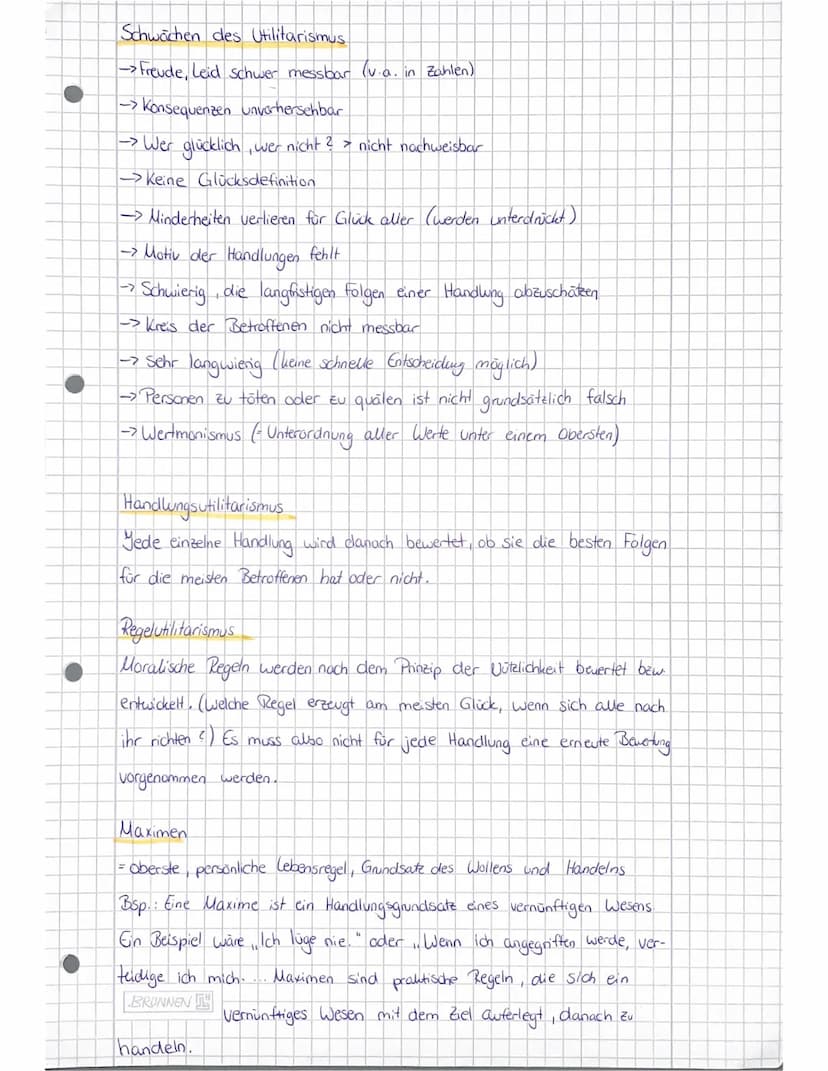 Schwächen des Utilitarismus
-> Freude, Leid schwer messbar (v.a. in Zahlen)
-> Konsequenzen unvorhersehbar
-> Wer glücklich, wer nicht? > nicht nachweisbar
-> Keine Glücksdefinition
-> Minderheiten verlieren für Glück aller (werden unterdrückt)
-> Motiv der Handlungen fehlt
-> Schwierig, die langfristigen Folgen einer Handlung abzuschätzen
-> Kreis der Betroffenen nicht messbar
-> Sehr langwierig (keine schnelle Entscheidung möglich)
-> Personen zu töten oder zu quälen ist nicht grundsätzlich falsch
-> Wertmonismus (= Unterordnung aller Werte unter einem Obersten)
Handlungsutilitarismus
Jede einzelne Handlung wird danach bewertet, ob sie die besten Folgen
für die meisten Betroffenen hat oder nicht.
Regelutilitarismus
Moralische Regeln werden nach dem Prinzip der Nützlichkeit bewertet bzw
entwickelt. (Welche Regel erzeugt am meisten Glück, wenn sich alle nach
ihr richten?) Es muss also nicht für jede Handlung eine erneute Bewertung
vorgenommen werden.
Maximen
= oberste, persönliche Lebensregel, Grundsatz des Wollens und Handelns
Bsp.: Eine Maxime ist ein Handlungsgrundsatz eines vernünftigen Wesens
Ein Beispiel wäre „Ich lüge nie." oder „Wenn ich angegriffen werde, ver-
teidige ich mich. ... Maximen sind praktische Regeln, die sich ein
BRUNNEN
vernünftiges Wesen mit dem Ziel auferlegt, danach zu
handeln.